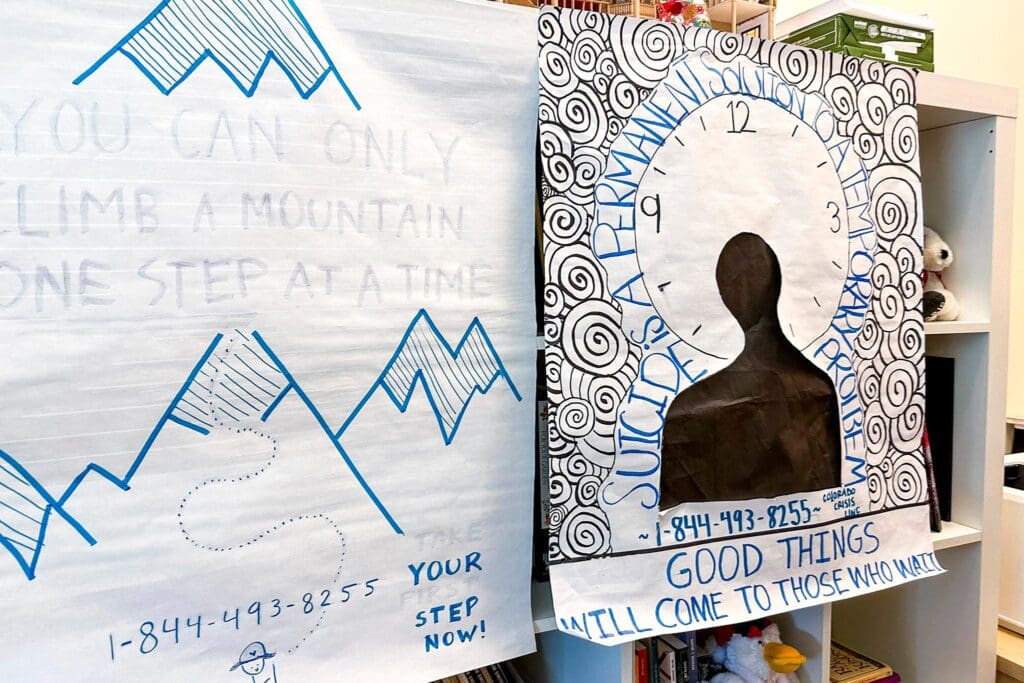 YOU CAN ONLY
CLIMB A MOUNTAIN
ONE STEP AT A TIME
1-844-493-8255
TAKE
YOUR
FIRST
STEP
NOW!
SUICIDE IS A PERMANENT SOLUTION TO A TEMPORARY PROBLEM
12
9
3
~1-844-493-8255~
COLORADO
CRISIS
LINE
GOOD THINGS
WILL COME TO THOSE WHO WAIT